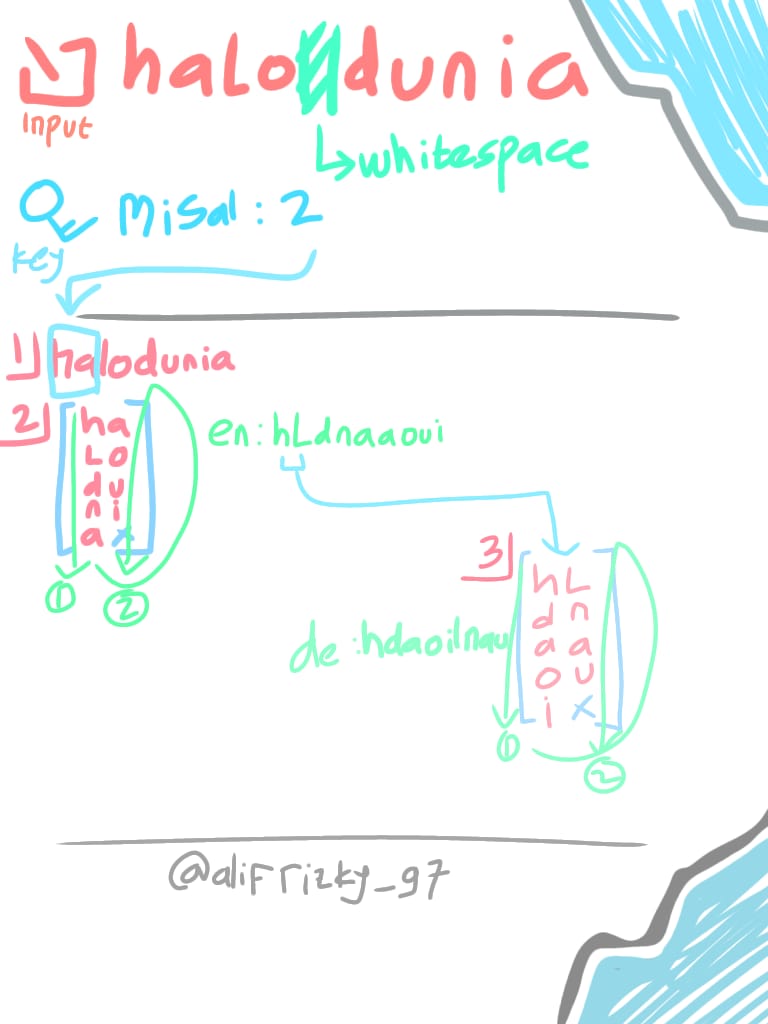 halo dunia
input
whitespace
Misal : 2
key
1] halodunia
2] ha
Lo
du
ni
ax
en: hLdnaaoui
① ②
3] hL
dn
aa
ou
ix
de: hdaoilnau
① ②
@alifrizky_97